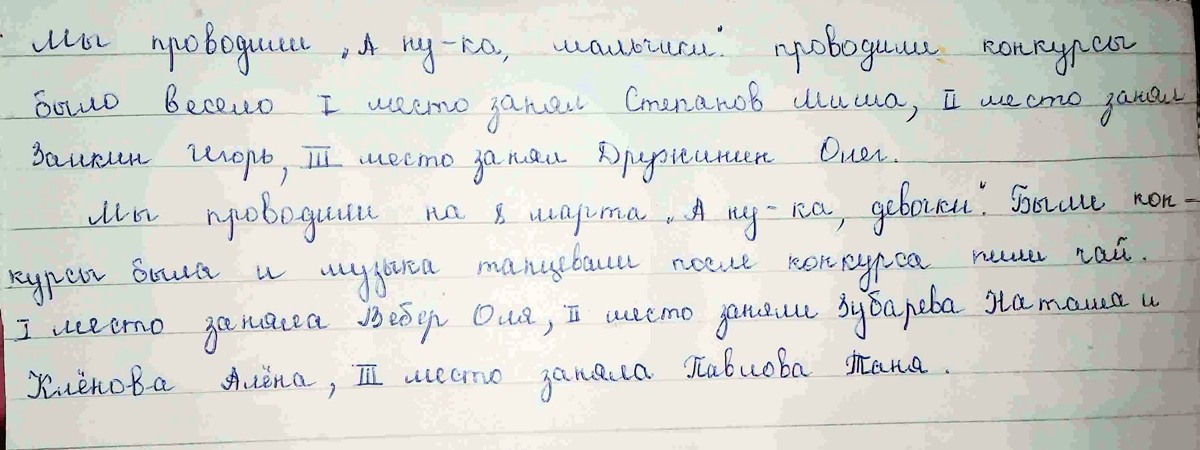 Мы проводили „А ну-ка, мальчики" проводили конкурсы
было весело I место занял Степанов Миша, II место занял
Заикин Игорь, III место занял Дружинин Олег.
Мы проводили на 8 марта „А ну-ка, девочки". Были кон-
курсы была и музыка танцевали после конкурса пили чай.
I место заняла Вебер Оля, II место заняли Зубарева Наташа и
Клёнова Алёна, III место заняла Павлова Таня.